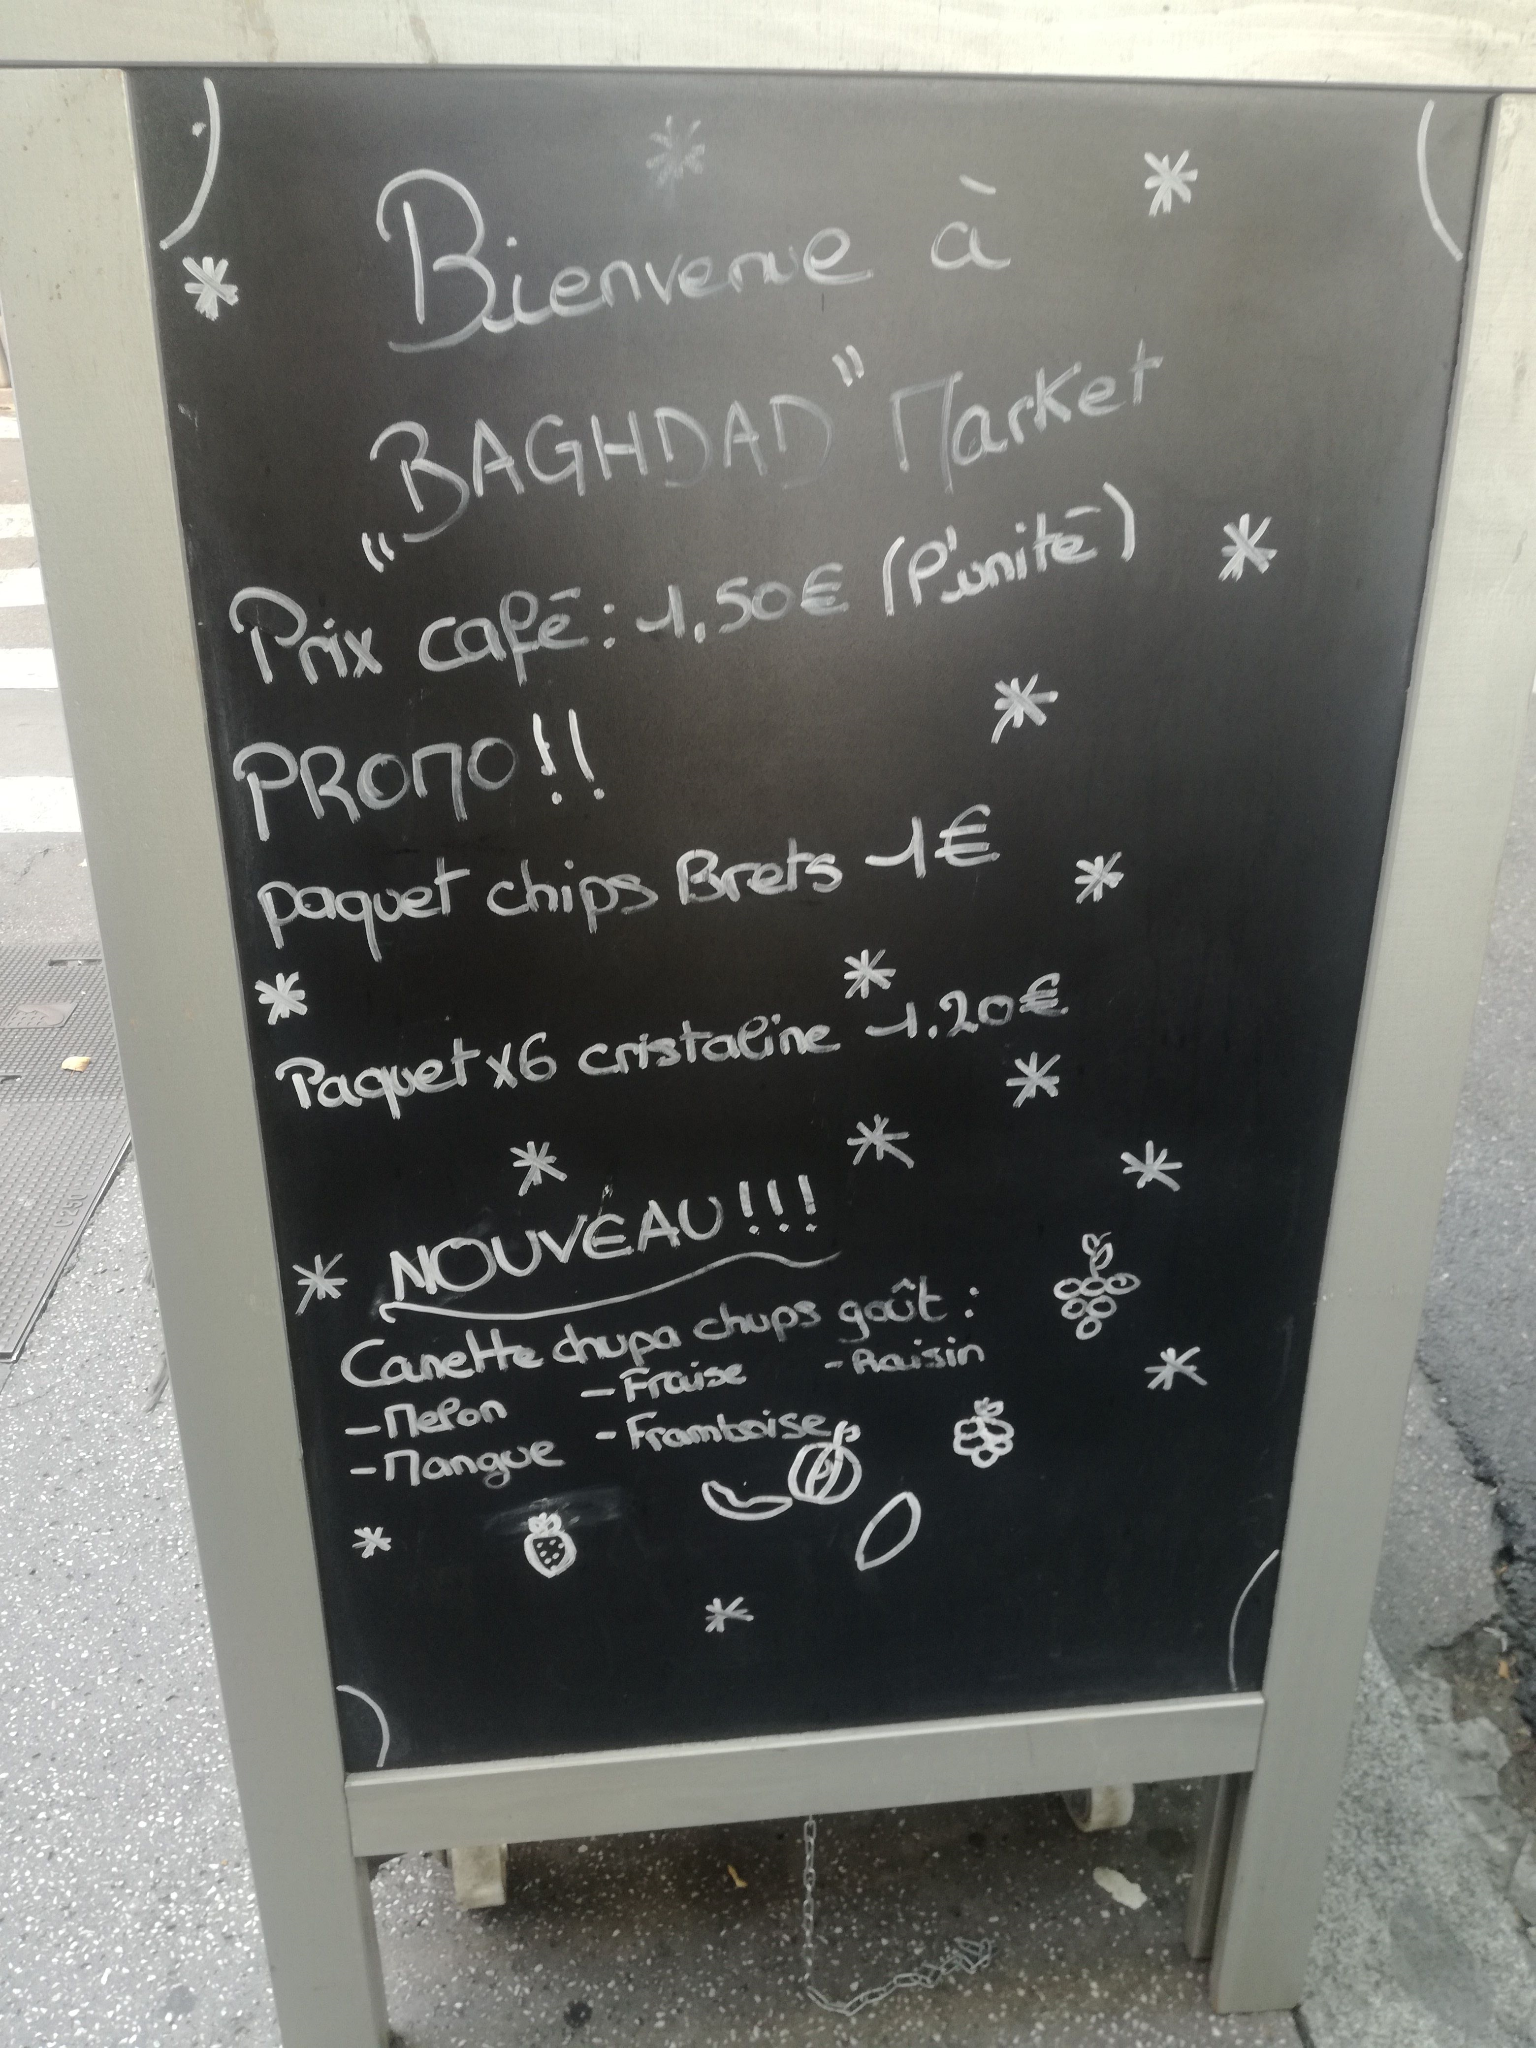 Bienvenue à
„BAGHDAD" Market
Prix café : 1.50€ (l'unité)
PROMO !!
paquet chips Brets 1€
Paquet x6 cristaline 1.20€
NOUVEAU !!!
Canette chupa chups goût :
- Melon - Fraise - Raisin
- Mangue - Framboise